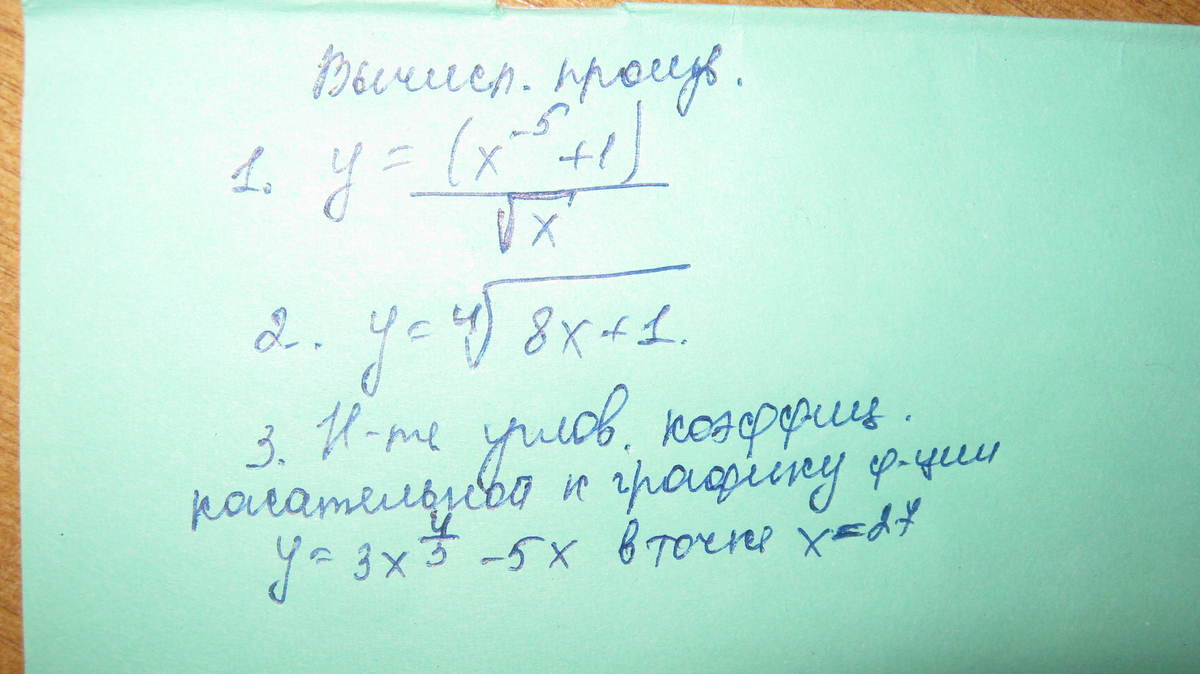 Вычисл. произв.
1. y = (x^-5 + 1) / √x
2. y = ⁴√(8x+1).
3. Н-те углов. коэффиц.
касательной к графику ф-ции
y = 3x^(4/3) - 5x в точке x=27